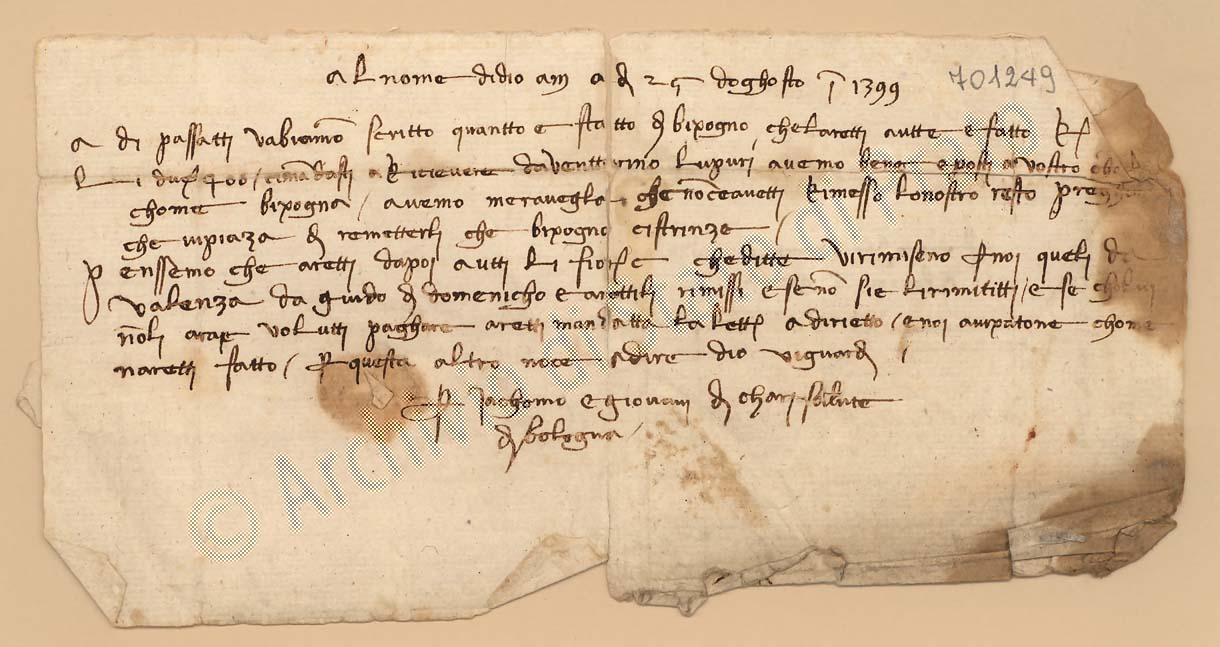 al nome di dio am a dì 25 d'oghosto 1399 701249
a dì passatti v'abiamo scritto quantto è statto di bixogno che l'aretti autte e fatto
Li duc 400 / ci mandasti a ricievere da Ventturino Lupuri avemo bene e posti a vostro
chome bixogna / avemo meraveglia che non ce avetti rimesso lo nostro resto
che vi piaza di remetterli che bixogno ci strinze /
Penssemo che aretti dapoi autti li fior C che ditte vi rimiseno per noi queli da
Valenza da Guido di Domenicho e arettili rimissi e se non sie li rimititti / e se
no li volutti paghare aretti mandatta la lett adirietto / e noi chome
n'aretti fatto / per questa altro non ce a dire dio vi guardi /
per Jachomo e Giovani di salute
di bologna
© Archivio di Stato di Prato